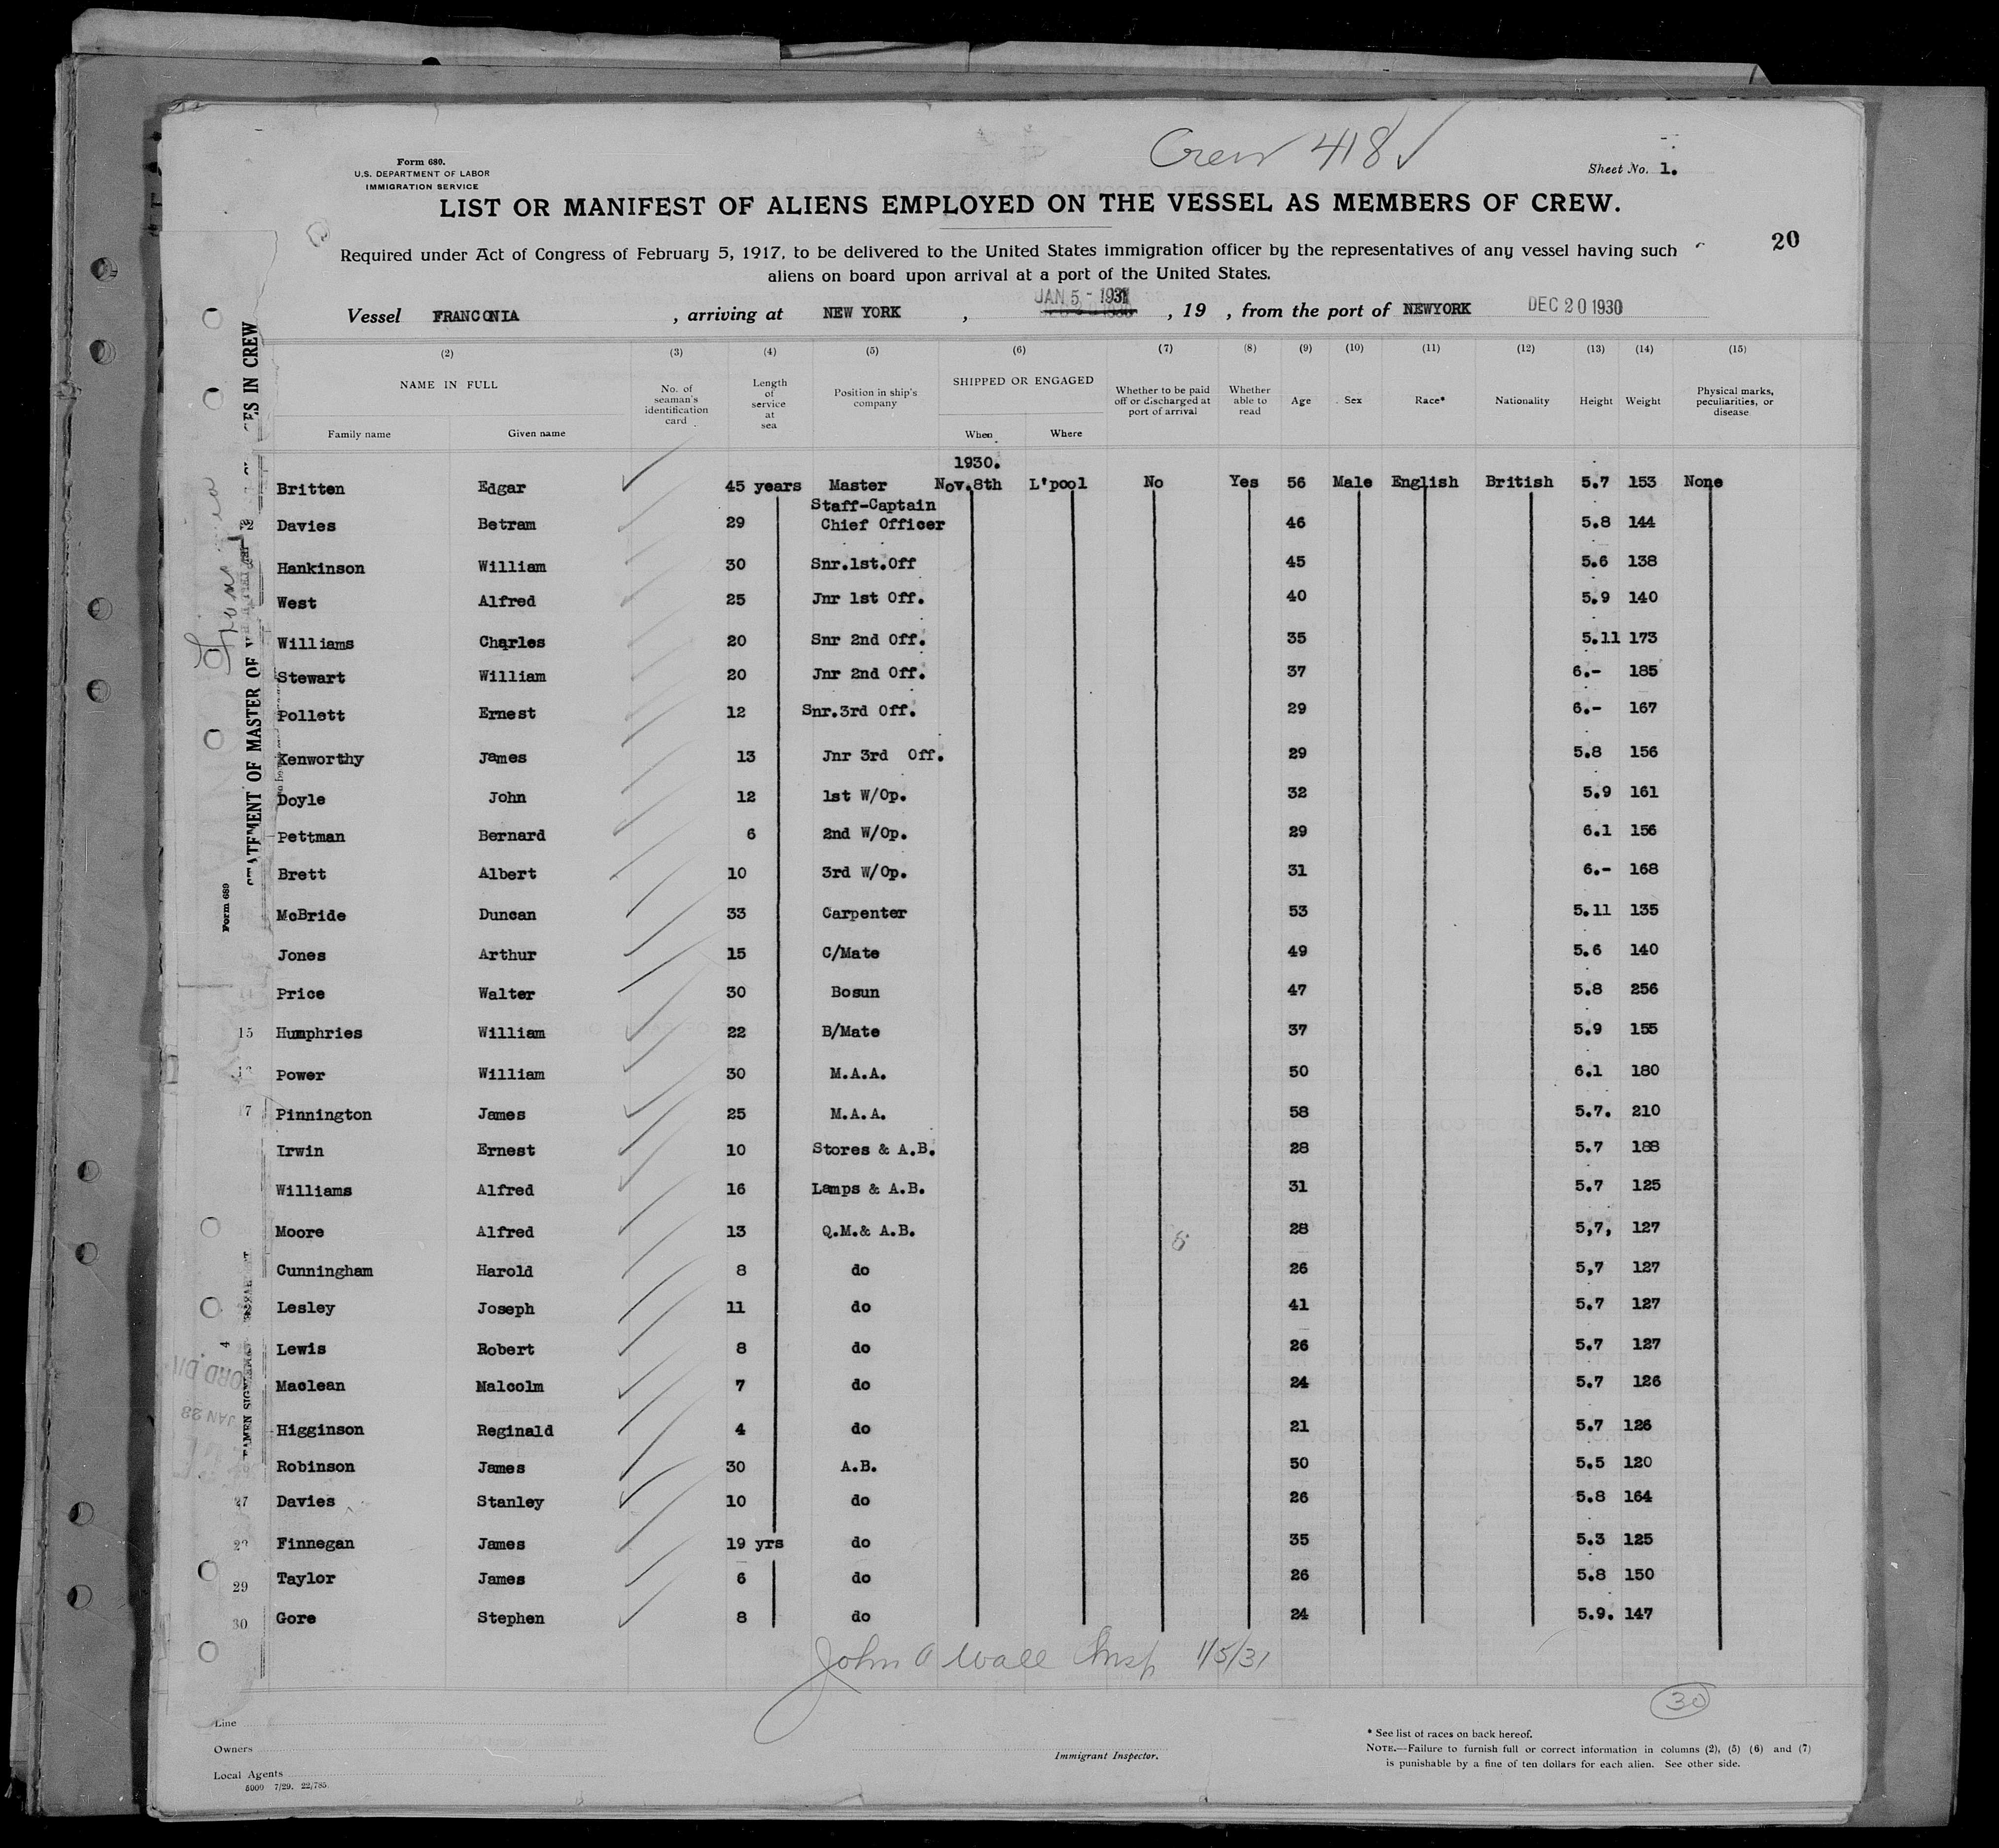 Crew 418 ✓
Form 689.
U.S. DEPARTMENT OF LABOR
IMMIGRATION SERVICE
Sheet No. 1.
LIST OR MANIFEST OF ALIENS EMPLOYED ON THE VESSEL AS MEMBERS OF CREW.
20
Required under Act of Congress of February 5, 1917, to be delivered to the United States immigration officer by the representatives of any vessel having such
aliens on board upon arrival at a port of the United States.
Vessel FRANCONIA , arriving at NEW YORK , JAN 5 - 1931 , 19 , from the port of NEWYORK DEC 20 1930
(2) (3) (4) (5) (6) (7) (8) (9) (10) (11) (12) (13) (14) (15)
NAME IN FULL No. of seaman's identification card Length of service at sea Position in ship's company SHIPPED OR ENGAGED Whether to be paid off or discharged at port of arrival Whether able to read Age Sex Race* Nationality Height Weight Physical marks, peculiarities, or disease
Family name Given name When Where
1930.
Britten Edgar 45 years Master Nov.8th L'pool No Yes 56 Male English British 5.7 153 None
Staff-Captain
Davies Betram 29 Chief Officer 46 5.8 144
Hankinson William 30 Snr.1st.Off 45 5.6 138
West Alfred 25 Jnr 1st Off. 40 5.9 140
Williams Charles 20 Snr 2nd Off. 35 5.11 173
Stewart William 20 Jnr 2nd Off. 37 6.- 185
Pollett Ernest 12 Snr.3rd Off. 29 6.- 167
Kenworthy James 13 Jnr 3rd Off. 29 5.8 156
Doyle John 12 1st W/Op. 32 5.9 161
Pettman Bernard 6 2nd W/Op. 29 6.1 156
Brett Albert 10 3rd W/Op. 31 6.- 168
McBride Duncan 33 Carpenter 53 5.11 135
Jones Arthur 15 C/Mate 49 5.6 140
Price Walter 30 Bosun 47 5.8 256
15 Humphries William 22 B/Mate 37 5.9 155
Power William 30 M.A.A. 50 6.1 180
Pinnington James 25 M.A.A. 58 5.7. 210
Irwin Ernest 10 Stores & A.B. 28 5.7 188
Williams Alfred 16 Lamps & A.B. 31 5.7 125
Moore Alfred 13 Q.M.& A.B. 28 5,7, 127
Cunningham Harold 8 do 26 5,7 127
Lesley Joseph 11 do 41 5.7 127
Lewis Robert 8 do 26 5.7 127
Maclean Malcolm 7 do 24 5.7 126
Higginson Reginald 4 do 21 5.7 126
Robinson James 30 A.B. 50 5.5 120
27 Davies Stanley 10 do 26 5.8 164
Finnegan James 19 yrs do 35 5.3 125
29 Taylor James 6 do 26 5.8 150
30 Gore Stephen 8 do 24 5.9. 147
John A Wall Insp 1/5/31
30
Line
Owners
Local Agents
5000 7/29. 22/785.
Immigrant Inspector.
* See list of races on back hereof.
NOTE.—Failure to furnish full or correct information in columns (2), (5) (6) and (7)
is punishable by a fine of ten dollars for each alien. See other side.
STATEMENT OF MASTER OF
ES IN CREW
Form 689
JAN 28